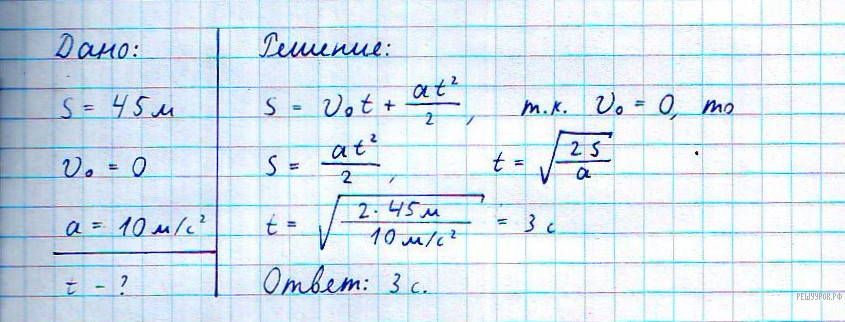 Дано:
S = 45 м
υ₀ = 0
a = 10 м/с²
t - ?
Решение:
S = υ₀t + at²/2, т.к. υ₀ = 0, то
S = at²/2, t = √(2S/a)
t = √(2·45 м/10 м/с²) = 3 с
Ответ: 3 с.
РЕШУУРОК.РФ